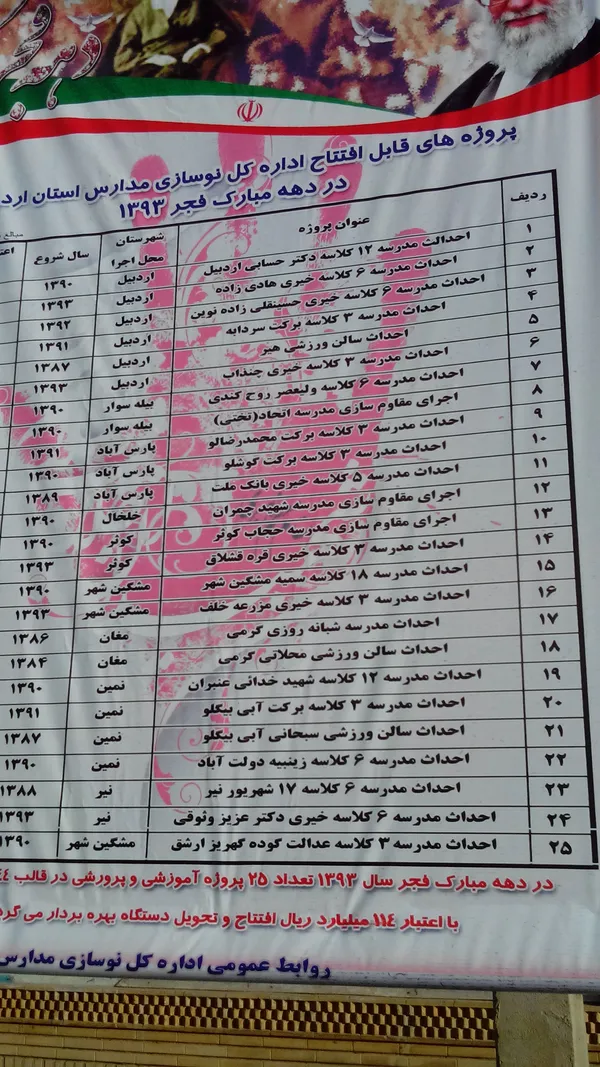 پروژه های قابل افتتاح اداره کل نوسازی مدارس استان ارد
در دهه مبارک فجر ۱۳۹۳
ردیف عنوان پروژه شهرستان محل اجرا سال شروع اعت
۱ احداالث مدرسه ۱۲ کلاسه دکتر حسابی اردبیل اردبیل ۱۳۹۰
۲ احداث مدرسه ۶ کلاسه خیری هادی زاده اردبیل ۱۳۹۳
۳ احداث مدرسه ۶ کلاسه خیری حسینقلی زاده نوین اردبیل ۱۳۹۲
۴ احداث مدرسه ۳ کلاسه برکت سردابه اردبیل ۱۳۹۱
۵ احداث سالن ورزشی هیر اردبیل ۱۳۸۷
۶ احداث مدرسه ۳ کلاسه خیری چنداب اردبیل ۱۳۹۳
۷ احداث مدرسه ۶ کلاسه ولیعصر روح کندی بیله سوار ۱۳۹۰
۸ اجرای مقاوم سازی مدرسه اتحاد(تختی) بیله سوار ۱۳۹۰
۹ احداث مدرسه ۳ کلاسه برکت محمدرضالو پارس آباد ۱۳۹۱
۱۰ احداث مدرسه ۳ کلاسه برکت گوشلو پارس آباد ۱۳۹۰
۱۱ احداث مدرسه ۵ کلاسه خیری بانک ملت پارس آباد ۱۳۸۹
۱۲ اجرای مقاوم سازی مدرسه شهید چمران خلخال ۱۳۹۰
۱۳ اجرای مقاوم سازی مدرسه حجاب کوثر کوثر ۱۳۹۰
۱۴ احداث مدرسه ۳ کلاسه خیری قره قشلاق کوثر ۱۳۹۳
۱۵ احداث مدرسه ۱۸ کلاسه سمیه مشگین شهر مشگین شهر ۱۳۹۰
۱۶ احداث مدرسه ۳ کلاسه خیری مزرعه خلف مشگین شهر ۱۳۹۳
۱۷ احداث مدرسه شبانه روزی گرمی مغان ۱۳۸۶
۱۸ احداث سالن ورزشی محلاتی گرمی مغان ۱۳۸۴
۱۹ احداث مدرسه ۱۲ کلاسه شهید خدائی عنبران نمین ۱۳۹۰
۲۰ احداث مدرسه ۳ کلاسه برکت آبی بیگلو نمین ۱۳۹۱
۲۱ احداث سالن ورزشی سبحانی آبی بیگلو نمین ۱۳۸۷
۲۲ احداث مدرسه ۶ کلاسه زینبیه دولت آباد نمین ۱۳۹۰
۲۳ احداث مدرسه ۶ کلاسه ۱۷ شهریور نیر نیر ۱۳۸۸
۲۴ احداث مدرسه ۶ کلاسه خیری دکتر عزیز وثوقی نیر ۱۳۹۳
۲۵ احداث مدرسه ۳ کلاسه عدالت گوده کهریز ارشق مشگین شهر ۱۳۹۰
در دهه مبارک فجر سال ۱۳۹۳ تعداد ۲۵ پروژه آموزشی و پرورشی در قالب
با اعتبار ۱۱۴ میلیارد ریال افتتاح و تحویل دستگاه بهره بردار می گرد
روابط عمومی اداره کل نوسازی مدارس